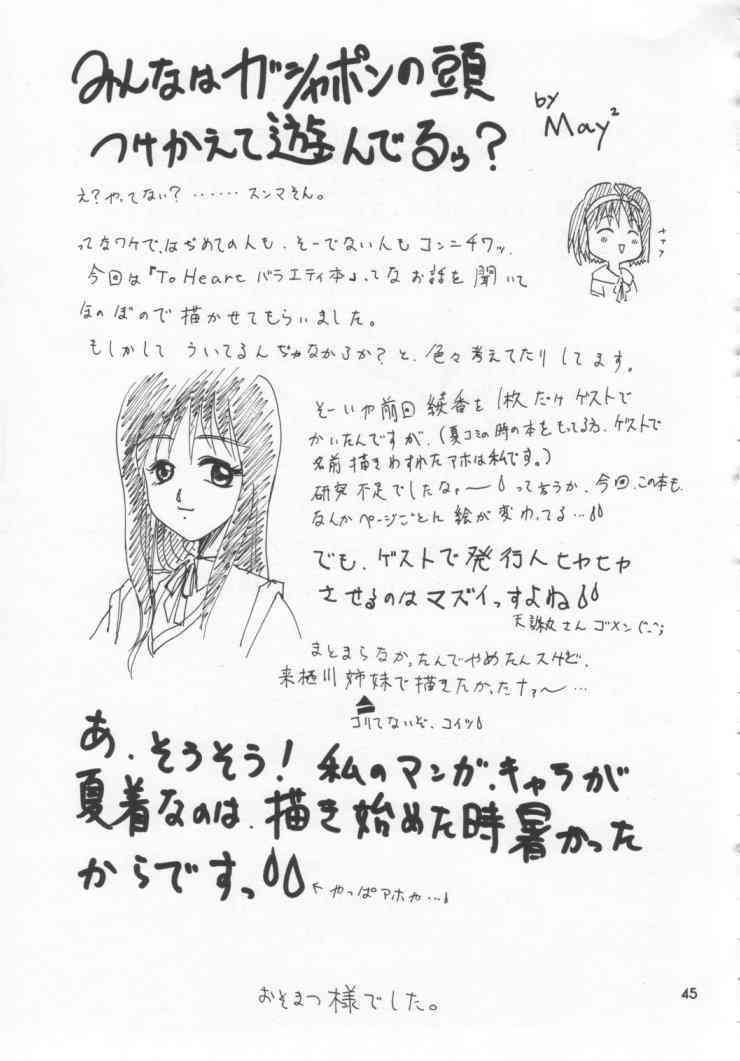 みんなはガシャポンの頭
つけかえて遊んでるぅ?
by
May²
え?やってない?……スンマそん。
ってなワケで、はぢめての人も、そーでない人もコンニチワッ。
今回は『To Heart バラエティ本』ってなお話を聞いて
ほのぼので描かせてもらいました。
もしかして ういてるんぢゃなかろか?と、色々考えてたりしてます。
そーいや前回 綾香を1枚だけゲストで
かいたんですが、(夏コミの時の本をもってる方、ゲストで
名前描きわすれたアホは私です。)
研究不足でしたなァ〜って言うか、今回、この本も、
なんかページごとに絵が変わってる…
でも、ゲストで発行人ヒヤヒヤ
させるのはマズイっすよね
さん ゴメン(^_^;
まとまらなかったんでやめたんスけど、
来栖川姉妹で描きたかったナァ〜…
コリてないぞ、コイツ
あ、そうそう! 私のマンガ、キャラが
夏着なのは、描き始めた時暑かった
からですっ
←やっぱアホや…
おそまつ様でした。
45